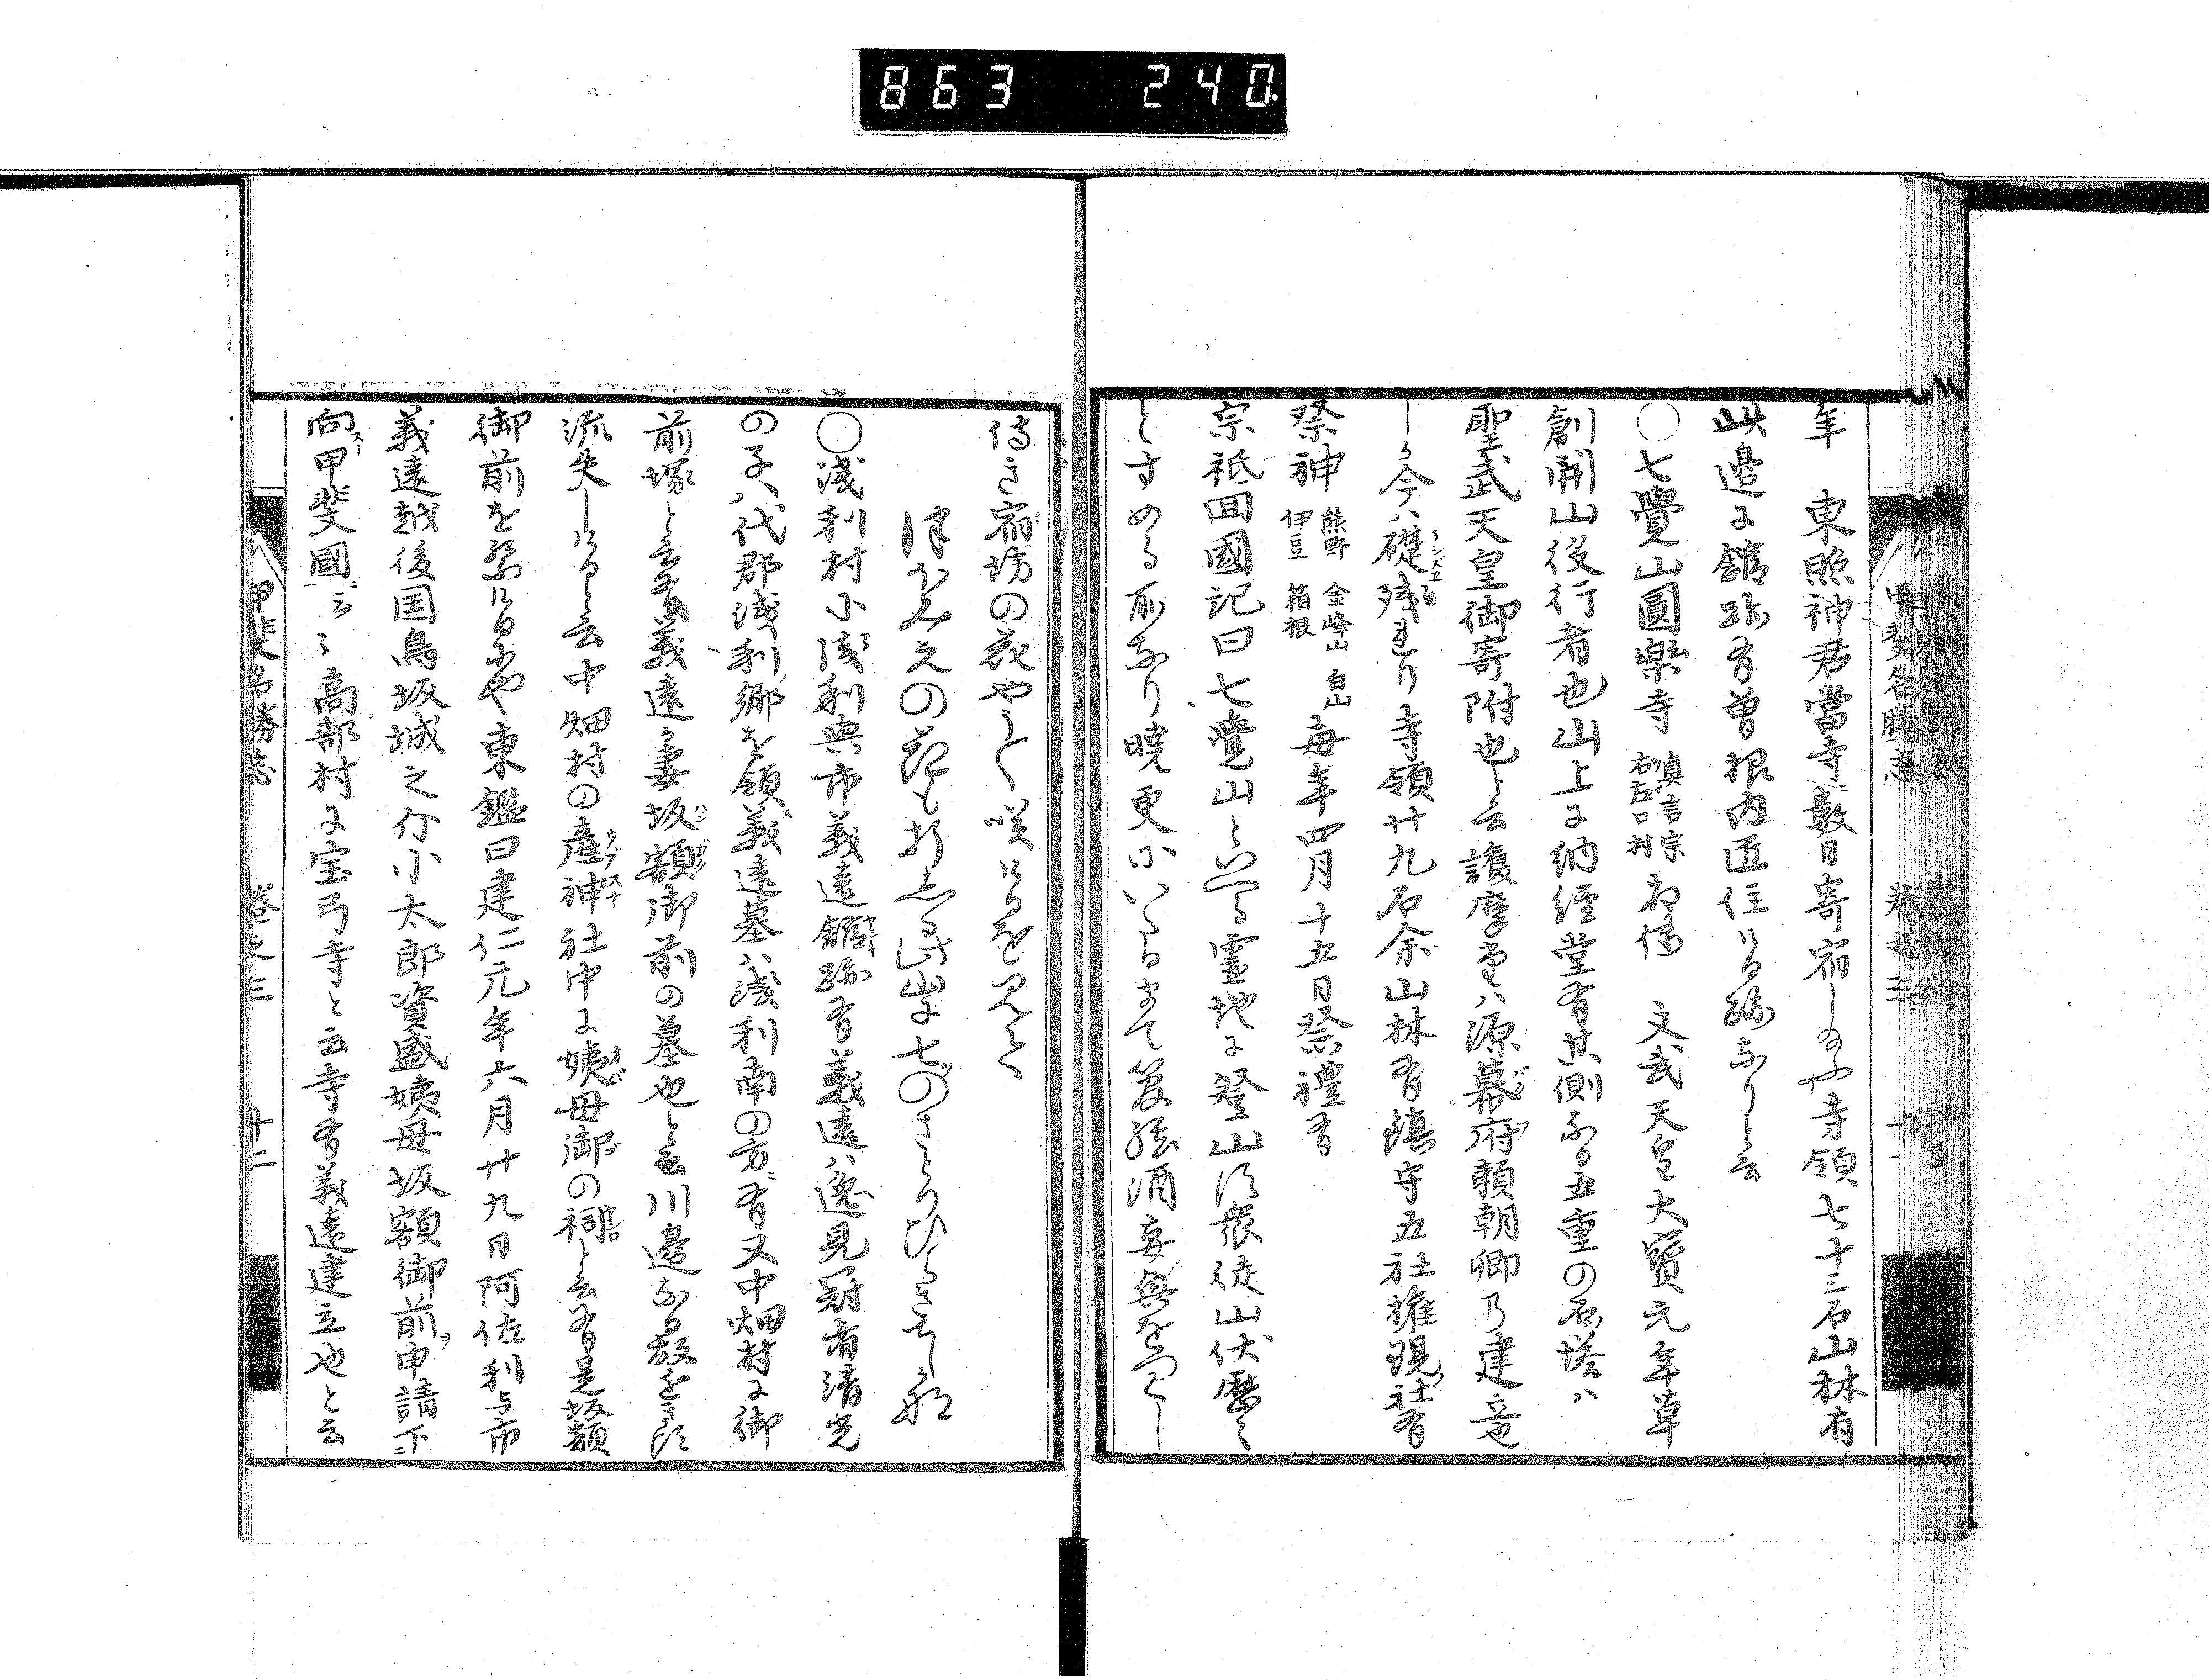 863 240.
年 東照神君當寺ニ數日寄宿し給ふや寺領七十三石山林有
此邉に舘跡有曽根内匠住ける跡なりと云
○七覺山圓樂寺 真言宗 右左口村 相傳 文武天皇大寳元年草
創開山役行者也山上に納經堂有其側なる五重の石塔ハ
聖武天皇御寄附也と云護摩堂ハ源幕府頼朝卿乃建立也
しか今ハ礎残れり寺領廿九石余山林有鎮守五社権現ノ社有
祭神 熊野 金峰山 白山 伊豆 箱根 毎年四月十五日祭禮有
宗祇回國記曰七覺山といへる霊地に登山す衆徒山伏歴々
とすめる所なり暁更にいたるまて管絃酒宴興をつくし
侍き宿坊の花やう〱咲けるを見て
も 此山に七のさとりひらき
○淺利村小淺利與市義遠舘跡有義遠ハ逸見冠者清光
の子八代郡淺利ノ郷を領ス義遠墓ハ淺利南の方ニ有又中畑村に御
前塚と云有義遠か妻坂額御前の墓也と云川邉なる故を
流失しけると云中畑村の産神社中に姨母御の祠と云有是坂額
御前を祭りけるにや東鑑曰建仁元年六月廿九日阿佐利与市
義遠越後国鳥坂城之 小太郎資盛姨母坂額御前ヲ申請下ニ
向ス甲斐國ニ云々高部村に宝弓寺と云寺有義遠建立也と云
甲斐名勝志 巻之三 十一
甲斐名勝志 巻之三 十二